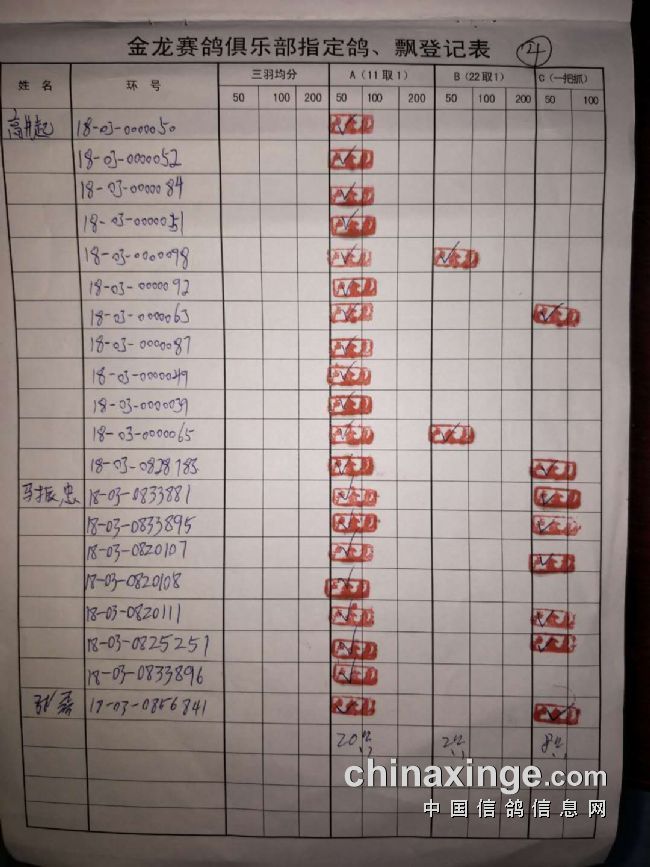 金龙赛鸽俱乐部指定鸽、飘登记表 ④
姓 名 环 号 三羽均分 A (11取1) B (22取1) C (一把抓)
50 100 200 50 100 200 50 100 200 50 100
18-03-0000050
18-03-0000052
18-03-0000084
18-03-0000051
18-03-0000098
18-03-0000092
18-03-0000063
18-03-0000087
18-03-0000049
18-03-0000039
18-03-0000065
18-03-0828783
马振忠 18-03-0833881
18-03-0833895
18-03-0820107
18-03-0820108
18-03-0820111
18-03-0825251
18-03-0833896
18-03-0856841
20 2 8
chinaxinge.com
中国信鸽信息网